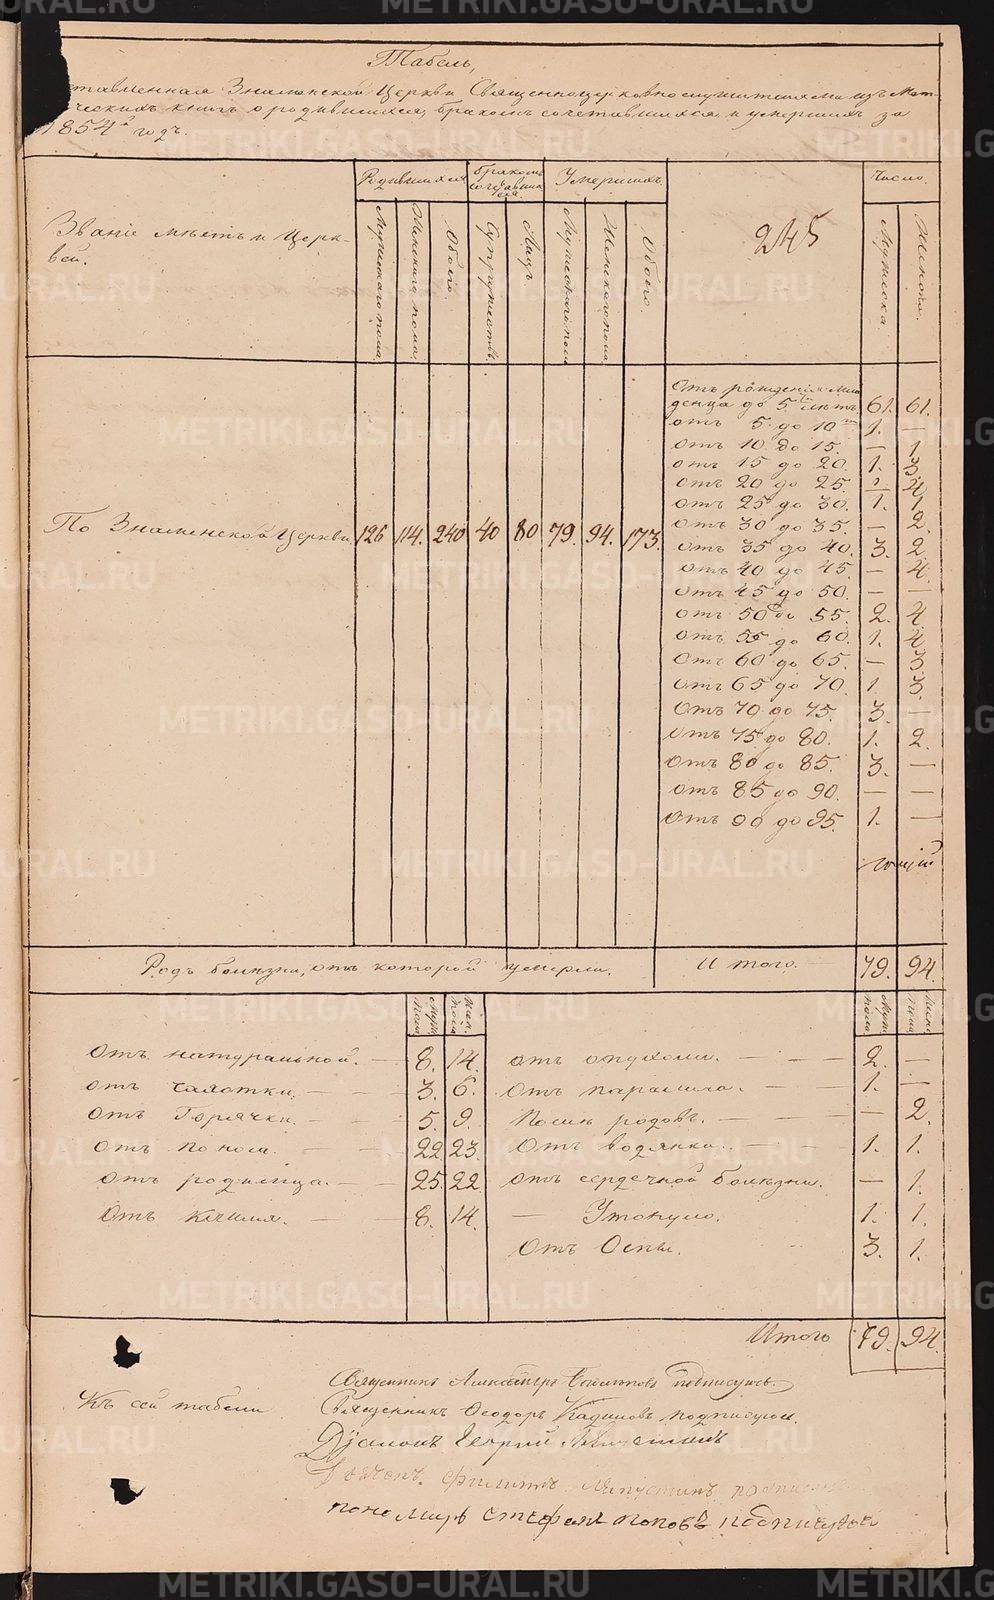 Табель,
ставленная Знаменской Церкви Священноцерковнослужителями изъ Мет-
ческихъ книгъ о родившихся, бракомъ сочетавшихся и умершихъ за
1854й годъ.
Званіе мѣстъ и Церк-
вей.
Родившихся
Мужескаго пола.
Женскаго пола.
Обоего.
бракомъ сочетавших
ся.
Супружествъ.
Лицъ
Умершихъ.
Мужескаго пола
Женскаго пола.
Обоего.
245
Число.
Мужеска.
Женска.
По Знаменской Церкви 126 114. 240 40 80 79. 94. 173.
Отъ рожденія мла
денца до 5ти лѣтъ. 61. 61.
отъ 5. до 10ти 1. —
отъ 10 до 15. — 1.
отъ 15 до 20. 1. 3.
отъ 20 до 25.
отъ 25 до 30. 1. 1.
отъ 30 до 35. — 2.
отъ 35 до 40. 3. 2.
отъ 40 до 45. — 4.
отъ 45 до 50. — —
отъ 50 до 55. 2. 4
отъ 55 до 60. 1. 4.
отъ 60 до 65. — 3.
отъ 65 до 70. 1. 3.
отъ 70 до 75. 3. —
отъ 75 до 80. 1. 2.
отъ 80 до 85. 3. —
отъ 85 до 90. — —
отъ 90 до 95. 1. —
Родъ болѣзни, отъ которой умерли.
Итого. — 79. 94.
Муж. пола
Жен. пола
Муж. пола
Жен. пола
отъ натуральной. — 8. 14.
отъ чахотки. — 3. 6.
отъ Горячки. — 5. 9.
отъ поноса. — 22. 23.
отъ родимца. — 25. 22
отъ кашля. — 8. 14.
отъ опухоли. — 2. —
отъ паралича. — 1. —
Послѣ родовъ. — — 2.
Отъ водянки. — 1. 1.
отъ сердечной болѣзни. — 1.
— Утонуло. 1. 1.
Отъ Оспы. 3. 1.
Итого 79. 94.
Къ сей табели
Священникъ Александръ подписуюсь.
Священникъ Ѳеодоръ подписуюсь.
Діаконъ Георгій
Филиппъ
пономарь Стефанъ Поповъ подписуюсь
METRIKI.GASO-URAL.RU